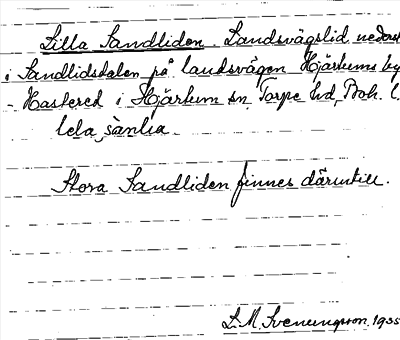 Lilla Sandliden. Landsvägslid nedast
i Sandlidsdalen på landsvägen Hjärtums by
- Hastered i Hjärtum sn, Torpe hd, Boh. l.
sänka
Stora Sandliden finnes därintill.
L. M. Svenungsson. 1935